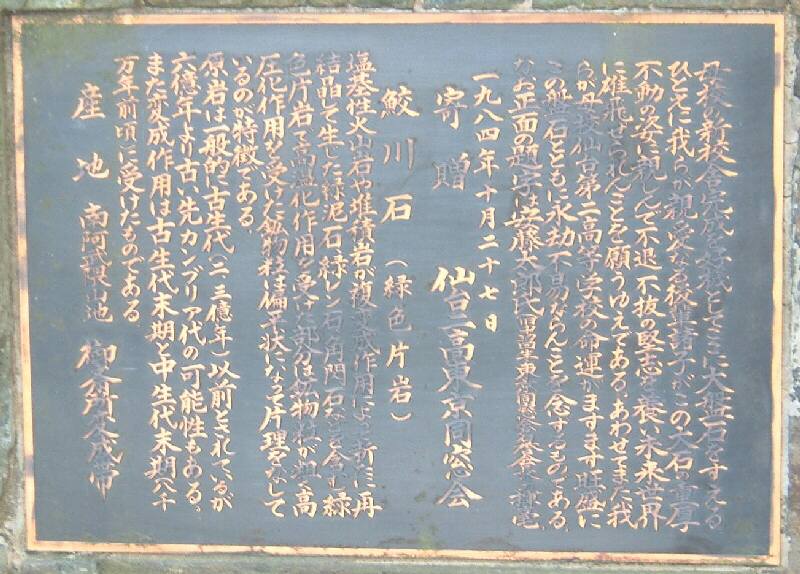 母校の新校舎完成を好機としてここに大盤石をすえる。
ひとえに我らが親愛なる後輩諸子がこの大石の重厚
不動の姿に親しんで不退不抜の堅志を養い未来世界
に雄飛せられんことを願うゆえである。あわせてまた我
らが母校仙台第二高等学校の命運がますます旺盛に
この盤石とともに永劫不易ならんことを念ずるものである。
なお正面の題字は
一九八四年十月二十七日
寄贈 仙台二高東京同窓会
鮫川石（緑色片岩）
塩基性火山岩や堆積岩が複変成作用により新に再
結晶して生じた緑泥石緑レン石角閃石などを含む緑
色片岩で高温化作用を受けた部分は鉱物粒が粗く高
圧化作用を受けた鉱物粒は偏平状になって片理をなして
いるのが特徴である。
原岩は一般的に古生代（二、三億年）以前とされているが
六億年より古い先カンブリア代の可能性もある。
また変成作用は古生代末期と中生代末期（八千
万年前頃）に受けたものである
産地 南阿武隈山地 御斎所変成帯